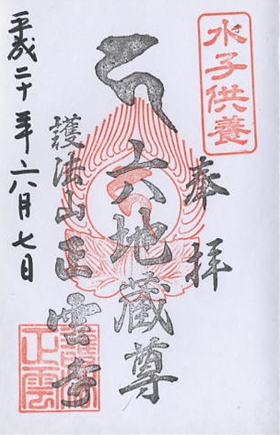 水子供養
奉拝
六地蔵尊
護法山正雲寺
平成二十年六月七日